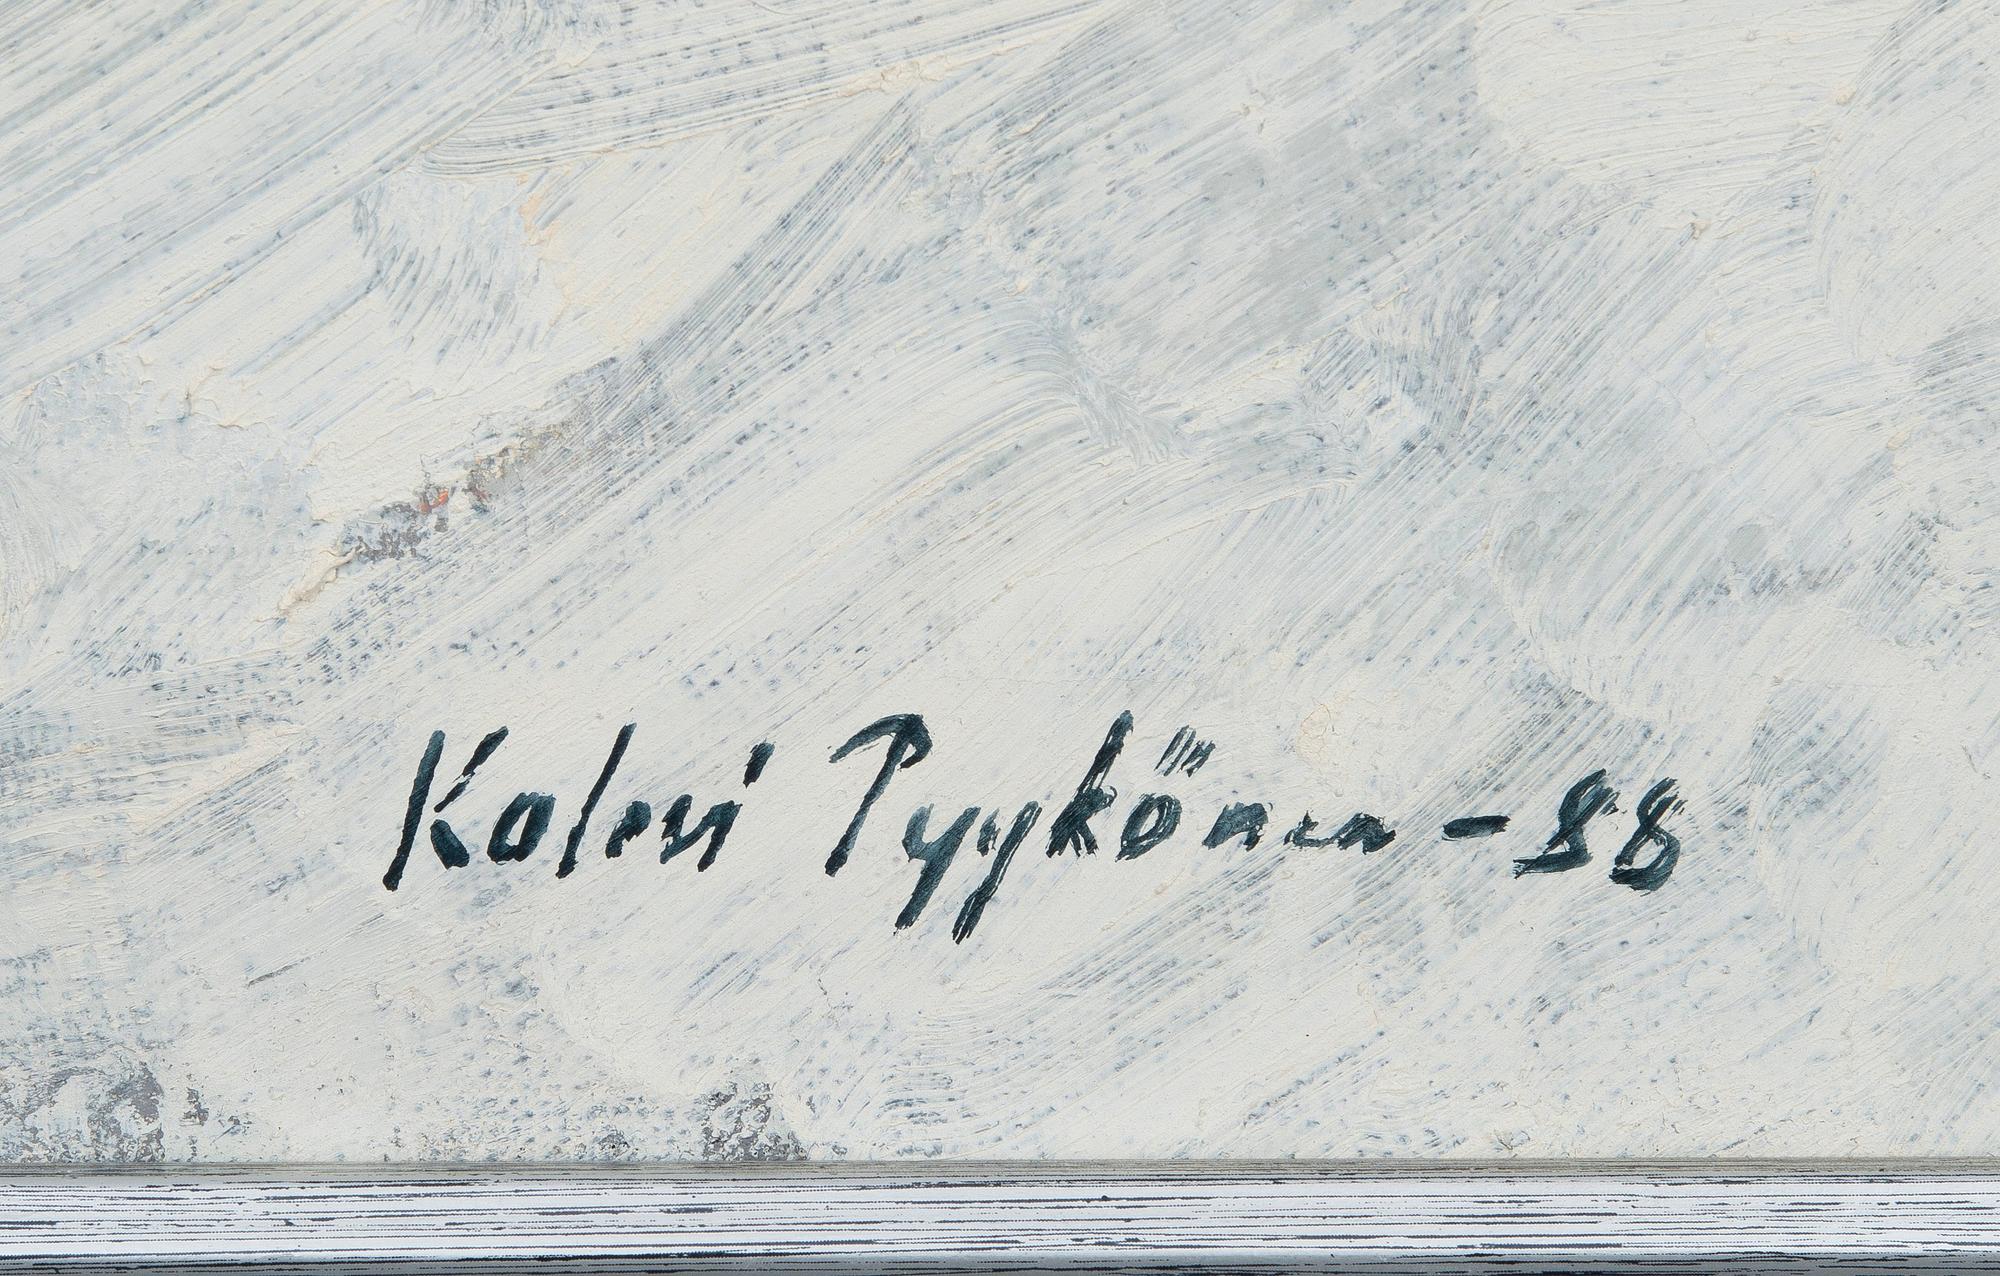 Kalevi Pyykönen -88